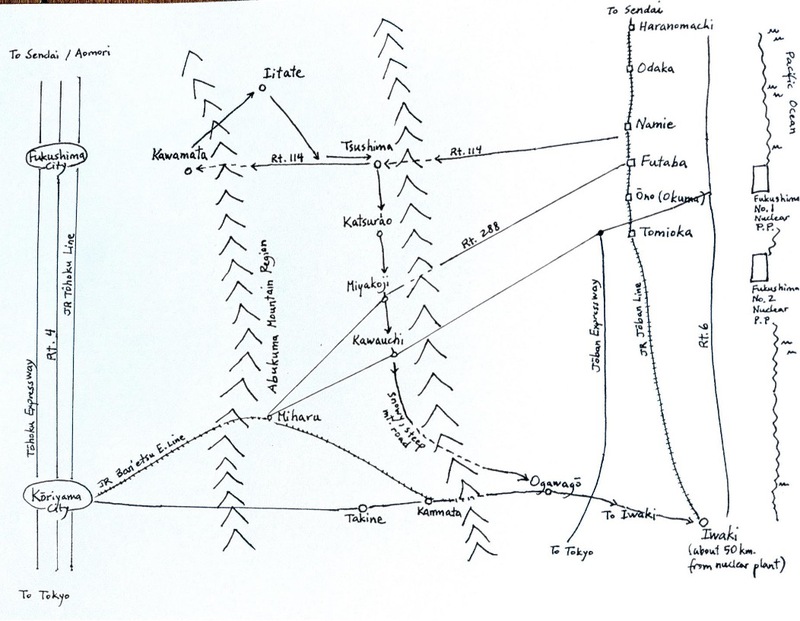 To Sendai / Aomori
Fukushima
City
Tōhoku Expressway
Rt. 4
JR Tōhoku Line
Kōriyama
City
To Tokyo
Kawamata
Iitate
Rt. 114
Tsushima
Rt. 114
Abukuma Mountain Region
Katsurao
Miyakoji
Rt. 288
Kawauchi
Snowy, steep
mt. road
Miharu
JR Ban'etsu E. Line
Takine
Kammata
Ogawagō
To Iwaki
To Tokyo
To Sendai
Haranomachi
Odaka
Namie
Futaba
Ōno (Okuma)
Tomioka
Jōban Expressway
JR Jōban Line
Rt. 6
Iwaki
(about 50 km.
from nuclear plant)
Pacific Ocean
Fukushima
No. 1
Nuclear
P.P.
Fukushima
No. 2
Nuclear
P.P.